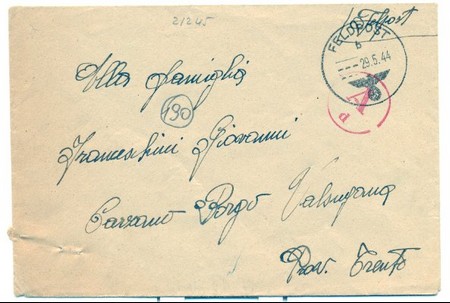 21245
Feldpost
FELDPOST
b
29.5.44
Alla famiglia
190
d
Franceschini Giovanni
Carzano Borgo Valsugana
Prov. Trento